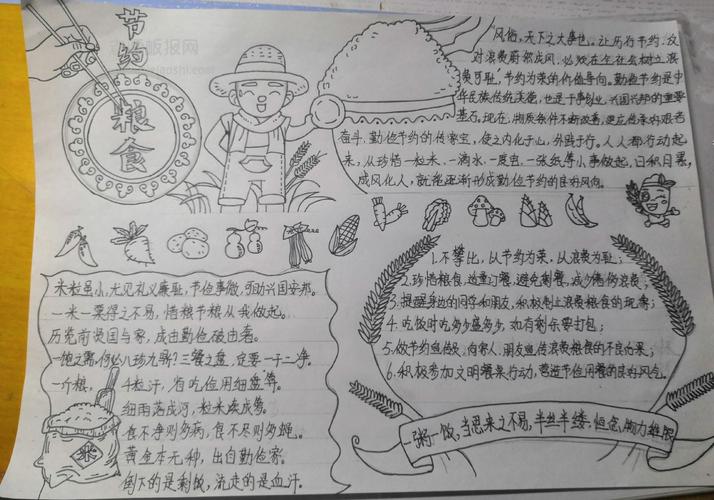 节约
粮食
风俗,天下之大事也,让厉行节约、反
对浪费蔚然成风,必须在全社会树立浪
费可耻、节约为荣的价值导向。勤俭节约是中
华民族传统美德,也是干事创业、兴国兴邦的重要
基石。现在,物质条件不断改善,更应传承好艰苦
奋斗、勤俭节约的传家宝,使之内化于心、外践于行。人人都行动起
来,从珍惜一粒米、一滴水、一度电、一张纸等小事做起,日积月累,
成风化人,就能逐渐形成勤俭节约的良好风尚。
米粒虽小,尤见礼义廉耻,节俭事微,可助兴国安邦。
一米一粟得之不易,惜粮节粮从我做起。
历览前贤国与家,成由勤俭破由奢。
一饱之需,何必八珍九鼎?三餐之盘,定要一干二净。
一斤粮,4粒汗,省吃俭用细盘算。
细雨落成河,粒米凑成箩。
食不净则多病,食不尽则多蝇。
黄金本无种,出自勤俭家。
倒下的是剩饭,流走的是血汗。
1.不攀比,以节约为荣,以浪费为耻;
2.珍惜粮食,适量订餐,避免剩餐,减少浪费;
3.提醒身边的同学和朋友,积极制止浪费粮食的现象;
4.吃饭时吃多少盛多少,如有剩余要打包;
5.做节约宣传员,向家人、朋友宣传浪费粮食的不良后果;
6.积极参加文明餐桌行动,营造节俭用餐的良好风气。
一粥一饭,当思来之不易,半丝半缕,恒念物力维艰